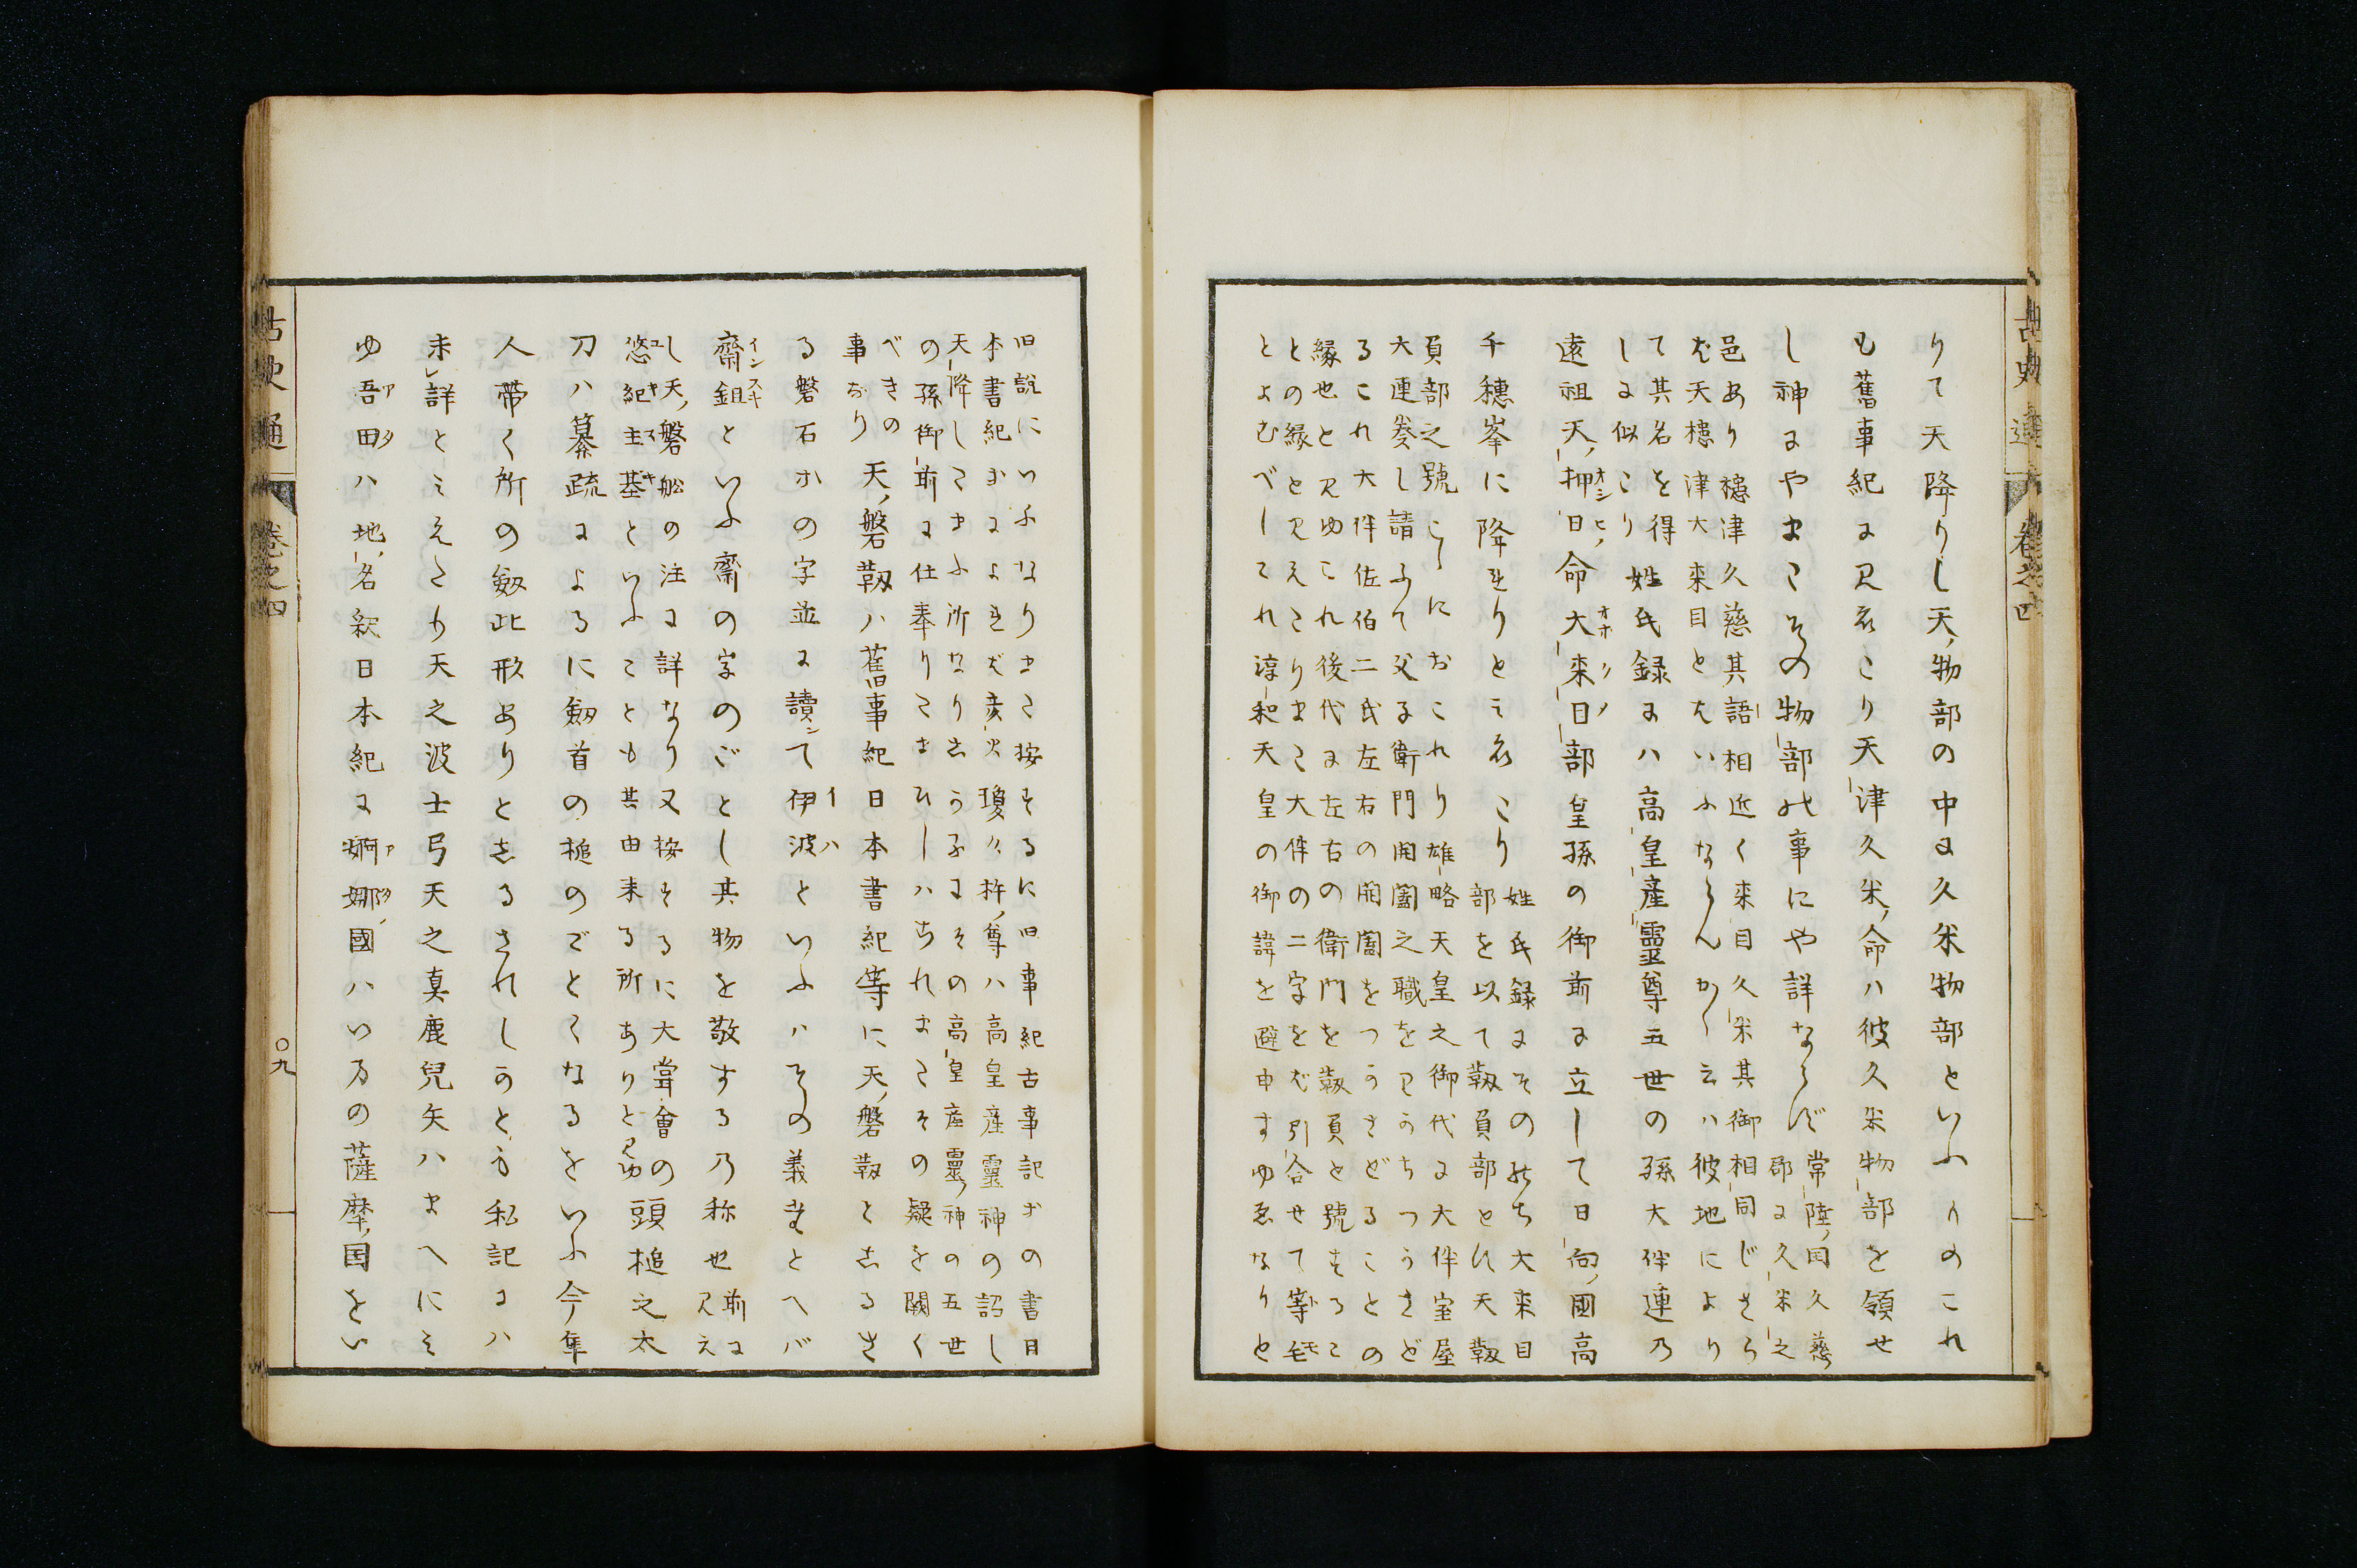 古史通 巻之四
りて天降りし天物部の中に久米物部といふものこれ
も舊事紀に見えたり天津久米命ハ彼久米物部を領せ
し神にやまたその物部の事にや詳ならず常陸国久慈
郡に久米之
邑あり穂津久慈其語相近く来目久米其御相同じさら
ば天穂津大来目とはいふならんか云ハ彼地により
て其名を得
しに似たり姓氏録にハ高皇産霊尊五世の孫大伴連乃
遠祖天押日命大来目部皇孫の御前に立して日向国高
千穂峯に降れりとみえたり姓氏録にそののち大来目
部を以て靱負部とす天靱
負部之號こゝにおこれり雄略天皇之御代に大伴室屋
大連奏し請ふて父子衛門開闔之職をわかちつかさど
るこれ大伴佐伯二氏左右の開闔をつかさどることの
縁也と見ゆこれ後代に左右の衛門を靱負と號するこ
との縁と見えたりまた大伴の二字をば引合せて等毛
とよむべしこれ淳和天皇の御諱を避申すゆゑなりと
旧説にいふなりまた按ずるに旧事紀古事記等の書日
本書紀等によれば彦火瓊々杵尊ハ高皇産霊神の詔し
天降したまふ所なりしかるにその高皇産霊神の五世
の孫御前に仕奉りたまひしハおそれまたその疑を闕く
べきの
事なり天磐靱ハ舊事紀日本書紀等に天磐靱としるさ
る磐石等の字並に讀て伊波といふハその義堅といへバ
齋鉏といふ齋の字のごとし其物を敬する乃称也前に
見え
し天磐船の注に詳なり又按ずるに大甞會の
悠紀主基といふことも其由来る所ありと見ゆ頭槌之太
刀ハ纂疏によるに劔首の槌のごとくなるをいふ今隼
人帯く所の劔此形ありとしるされしかとも私記にハ
未詳とみえたり天之波士弓天之真鹿兒矢ハまへにみ
ゆ吾田ハ地名釈日本紀に婀娜國ハいまの薩摩国をい
古史通 巻之四 〇九